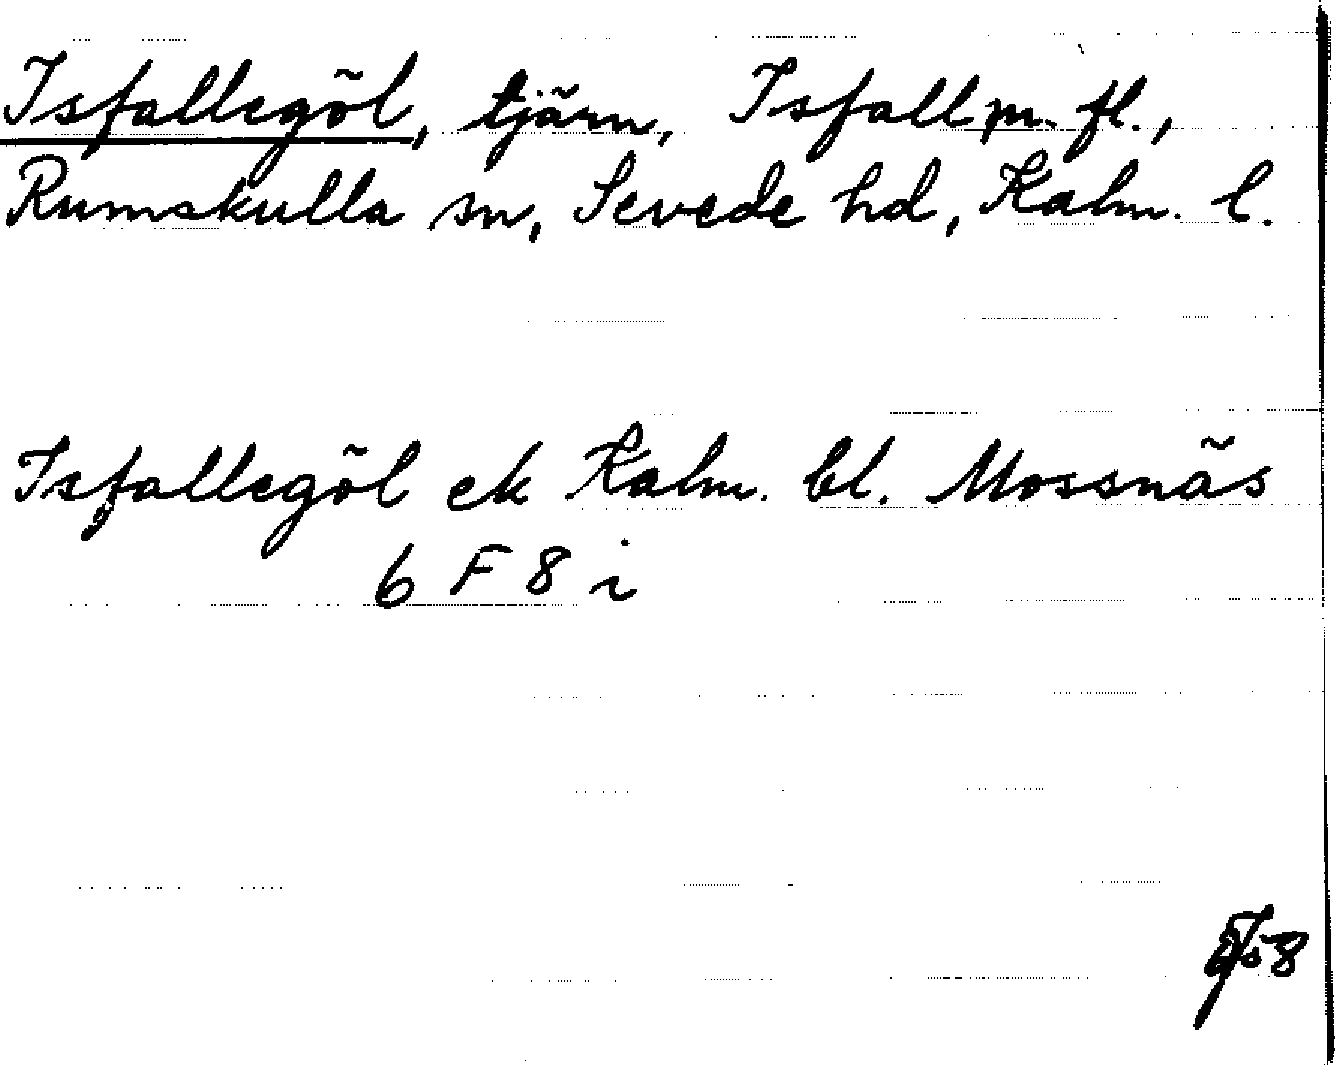 Isfallegöl, tjärn, Isfall m. fl.,
Rumskulla sn, Sevede hd, Kalm. l.
Isfallegöl ek Kalm. bl. Mossnäs
6 F 8 i